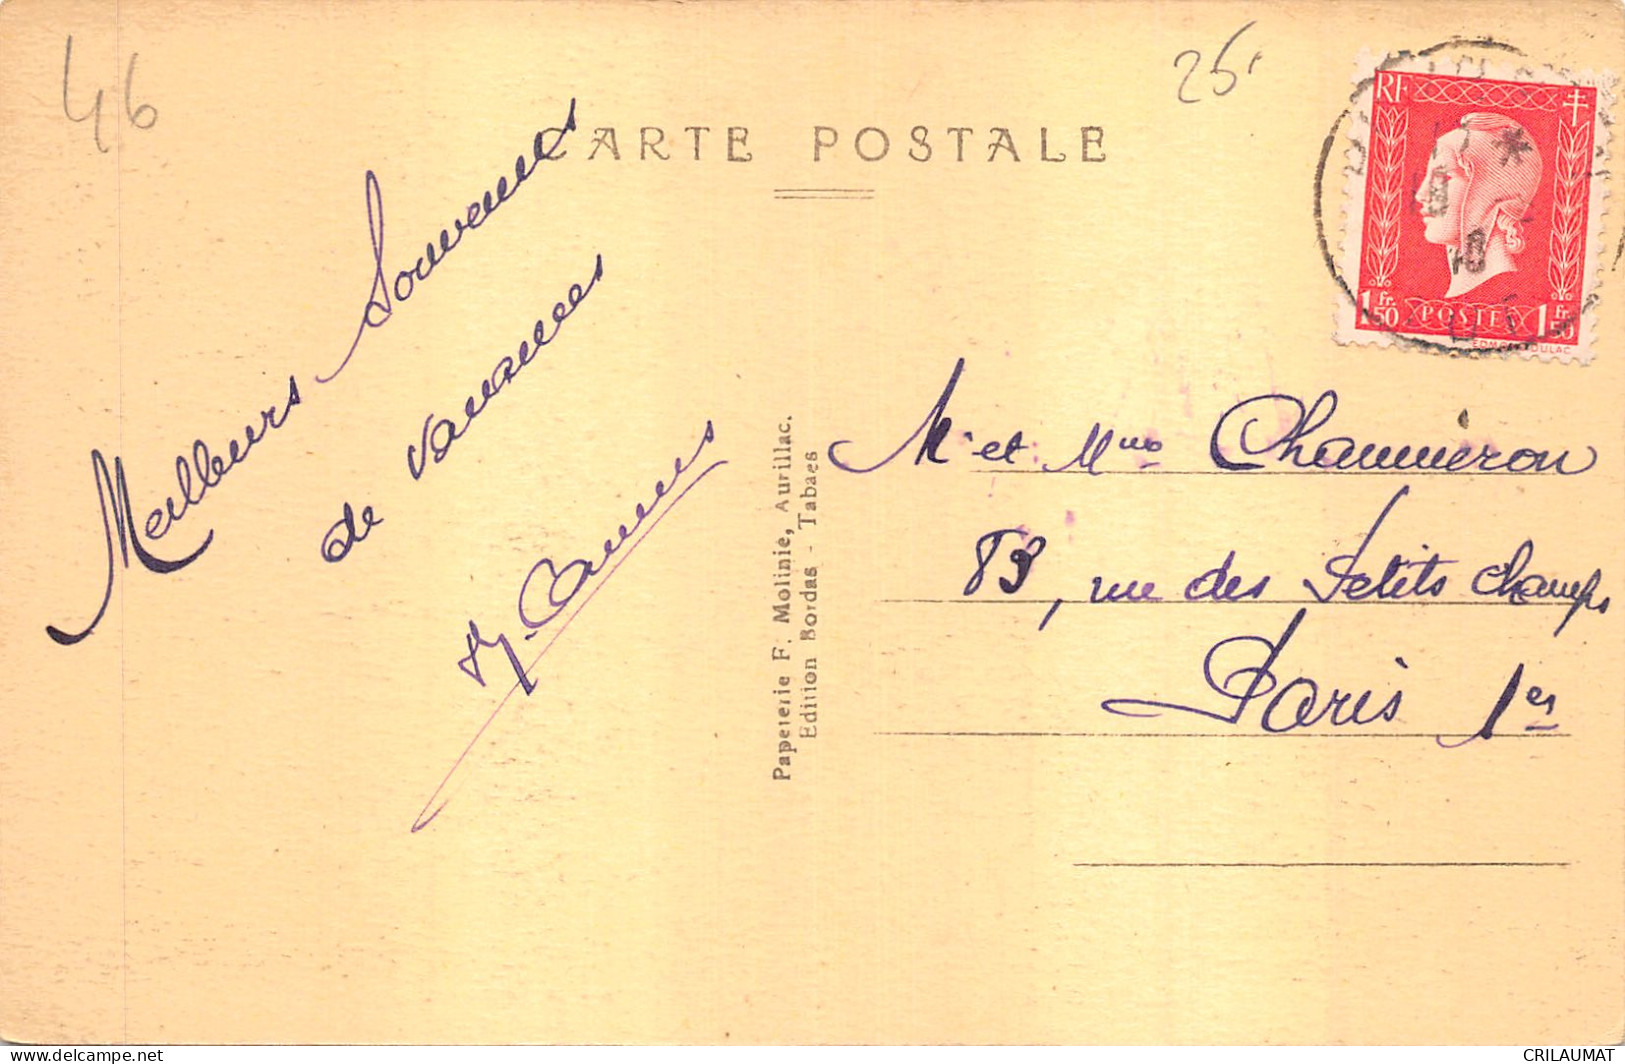 46
25
CARTE POSTALE
RF
1 Fr. 50 POSTES 1 Fr. 50
Meilleurs Souvenirs
de vacances
Camus
Papeterie F. Molinie, Aurillac.
Edition Bordas - Tabacs
Mr et Mme Chaumeron
83, rue des Petits Champs
Paris 1er
delcampe.net
CRILAUMAT